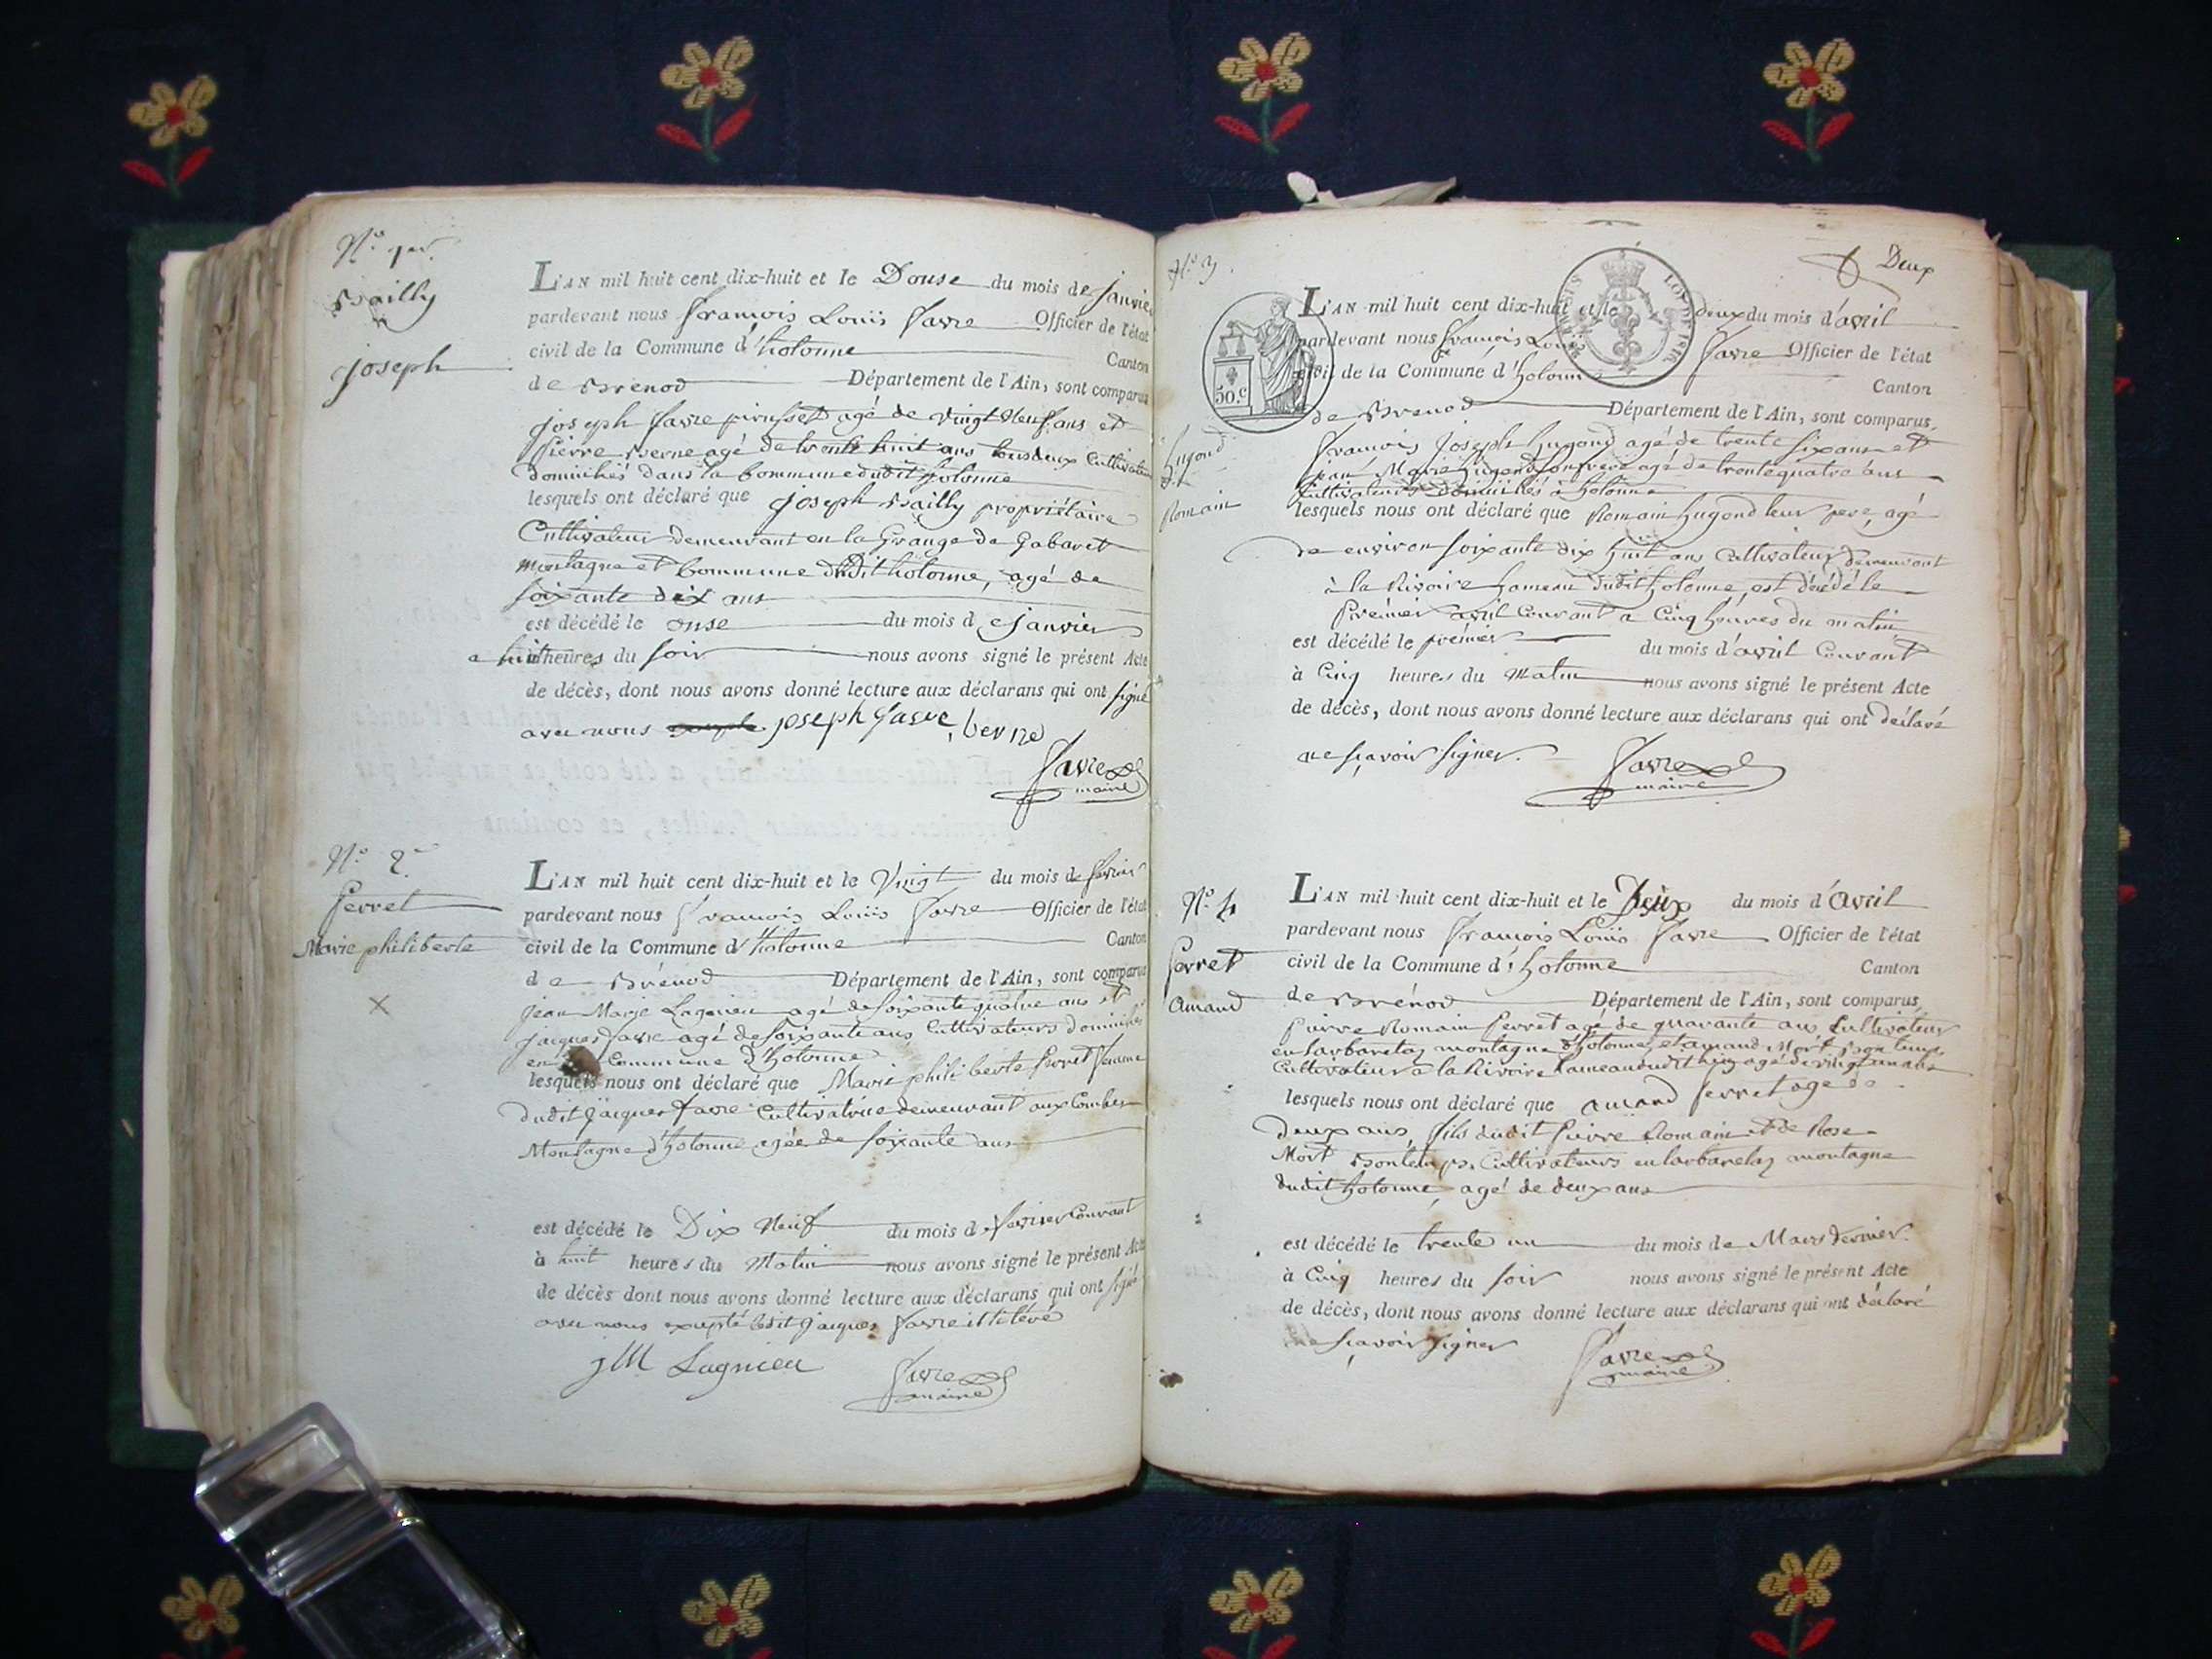 N.o 1er.
Bailly
Joseph
L'AN mil huit cent dix-huit et le Douse du mois de Janvier
pardevant nous François Louis Favre Officier de l'état
civil de la Commune d'hotonne Canton
de Brenod Département de l'Ain, sont comparus
joseph favre agé de vingt Neuf ans et
Pierre Berne agé de trente huit ans tous deux Cultivateurs
domiciliés dans la Commune dudit hotonne
lesquels ont déclaré que joseph Bailly propriétaire
Cultivateur demeurant en la Grange de Gabaret
montagne et Commune dudit hotonne, agé de
soixante dix ans
est décédé le onse du mois de janvier
a huit heures du soir nous avons signé le présent Acte
de décès, dont nous avons donné lecture aux déclarans qui ont signé
avec nous joseph favre, berne
favre
maire
N.o 2.
Perret
Marie philiberte
L'AN mil huit cent dix-huit et le Vingt du mois de fevrier
pardevant nous François Louis Favre Officier de l'état
civil de la Commune d'hotonne Canton
de Brénod Département de l'Ain, sont comparus
jean Marie Lagnieu agé de soixante quatre ans et
jacques favre agé de soixante ans Cultivateurs domiciliés
en Commune d'hotonne
lesquels nous ont déclaré que Marie philiberte Perret femme
dudit jacques favre Cultivatrice demeurant aux Combes
Montagne d'hotonne agée de soixante ans
est décédé le Dix Neuf du mois de fevrier Courant
à huit heures du Matin nous avons signé le présent Acte
de décès dont nous avons donné lecture aux déclarans qui ont signé
avec nous excepté ledit jacques favre illitéré
J M Lagnieu
favre
maire
Deux
N.o 3.
ROYAL
LOI DE 1816
50.c
hugond
dit
Romain
L'AN mil huit cent dix-huit et le deux du mois d'avril
pardevant nous françois Louis favre Officier de l'état
civil de la Commune d'hotonne Canton
de Brenod Département de l'Ain, sont comparus.
François Joseph hugond agé de trente six ans et
jean Marie hugond son frere agé de trente quatre ans
Cultivateurs domiciliés à hotonne
lesquels nous ont déclaré que Romain hugond leur pere, agé
de environ soixante dix huit ans Cultivateur demeurant
à la Rivoire hameau dudit hotonne, est décédé le
premier avril Courant a Cinq heures du matin
est décédé le premier du mois d'avril Courant
à Cinq heures du Matin nous avons signé le présent Acte
de décès, dont nous avons donné lecture aux déclarans qui ont déclaré
ne sçavoir signer.
favre
maire
N.o 4
Perret
amand
L'AN mil huit cent dix-huit et le Deux du mois d'avril
pardevant nous François Louis favre Officier de l'état
civil de la Commune d'hotonne Canton
de Brénod Département de l'Ain, sont comparus,
pierre Romain Perret agé de quarante ans Cultivateur
en larbarelaz montagne d'hotonne, et amand Mort Bontemps
Cultivateur a la Rivoire hameau dudit lieu agé de vingt
lesquels nous ont déclaré que amand Perret agé de
deux ans, fils dudit Pierre Romain et de Rose
Mort Bontemps, Cultivateurs en larbarelaz montagne
dudit hotonne, agé de deux ans
est décédé le trente un du mois de Mars dernier.
à Cinq heures du soir nous avons signé le présent Acte
de décès, dont nous avons donné lecture aux déclarans qui ont déclaré
ne sçavoir signer
favre
maire